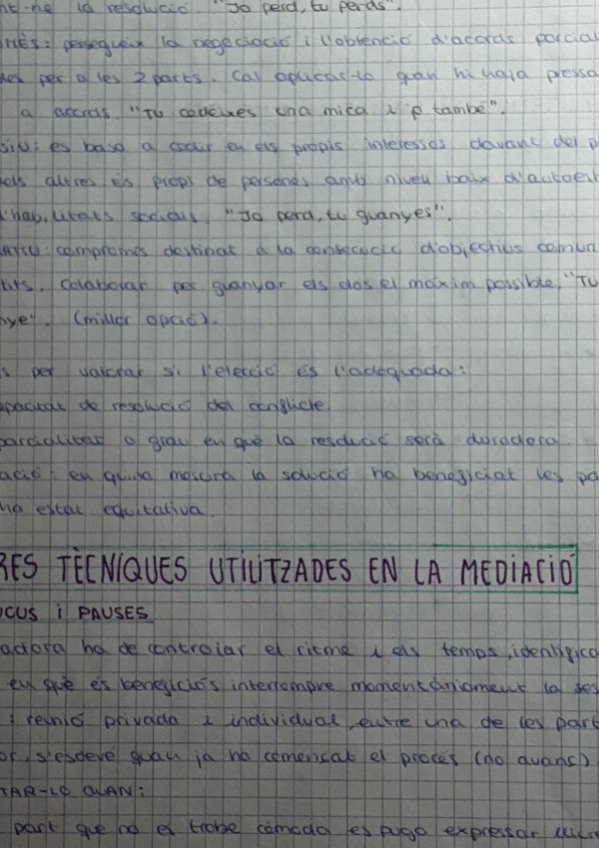 nt-ne la resolució. "Jo perd, tu perds".
MÉS: persegueix la negociació i l'obtenció d'acords parcial
les per a les 2 parts. Cal aplicar-lo quan hi haja pressa
a acords "Tu cedeixes una mica i jo també".
SIU: es basa a cedir en els propis interessos davant del p
els altres és propi de persones amb nivell baix d'autoest
habilitats socials. "Jo perd, tu guanyes".
ATIU: compromís destinat a la consecució d'objectius comun
nts. Colaborar per guanyar els dos el màxim possible. "Tu
nye". (millor opció).
s per valorar si l'elecció és l'adequada:
apacitat de resolució del conflicte
parcialitat o grau en què la resolució serà duradora
ació: en quina mesura la solució ha beneficiat les pa
ha estat equitativa.
RES TÈCNIQUES UTILITZADES EN LA MEDIACIÓ
OCUS i PAUSES
adora ha de controlar el ritme i els temps, identifica
en què és beneficiós interrompre momentàniament la ses
: reunió privada i individual, entre una de les part
or, s'esdevé quan ja ha començat el procés (no avans)
TAR-LO QUAN:
part que no es trobe còmoda es puga expressar